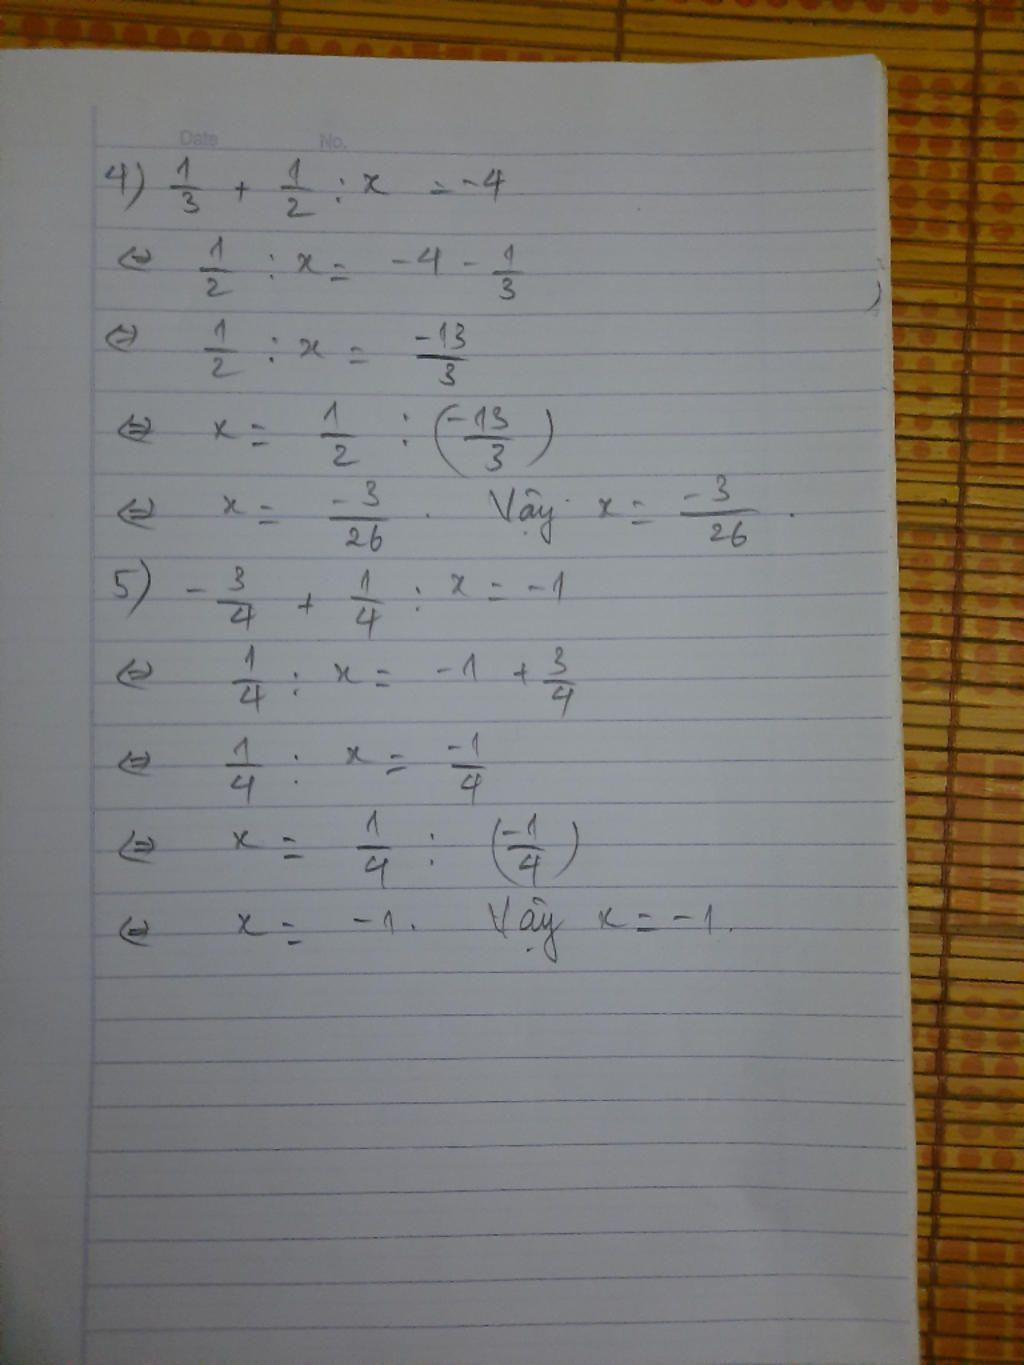 Date No.
4) 1/3 + 1/2 : x = -4
⇔ 1/2 : x = -4 - 1/3
⇔ 1/2 : x = -13/3
⇔ x = 1/2 : (-13/3)
⇔ x = -3/26 . Vậy x = -3/26 .
5) -3/4 + 1/4 : x = -1
⇔ 1/4 : x = -1 + 3/4
⇔ 1/4 : x = -1/4
⇔ x = 1/4 : (-1/4)
⇔ x = -1. Vậy x = -1.